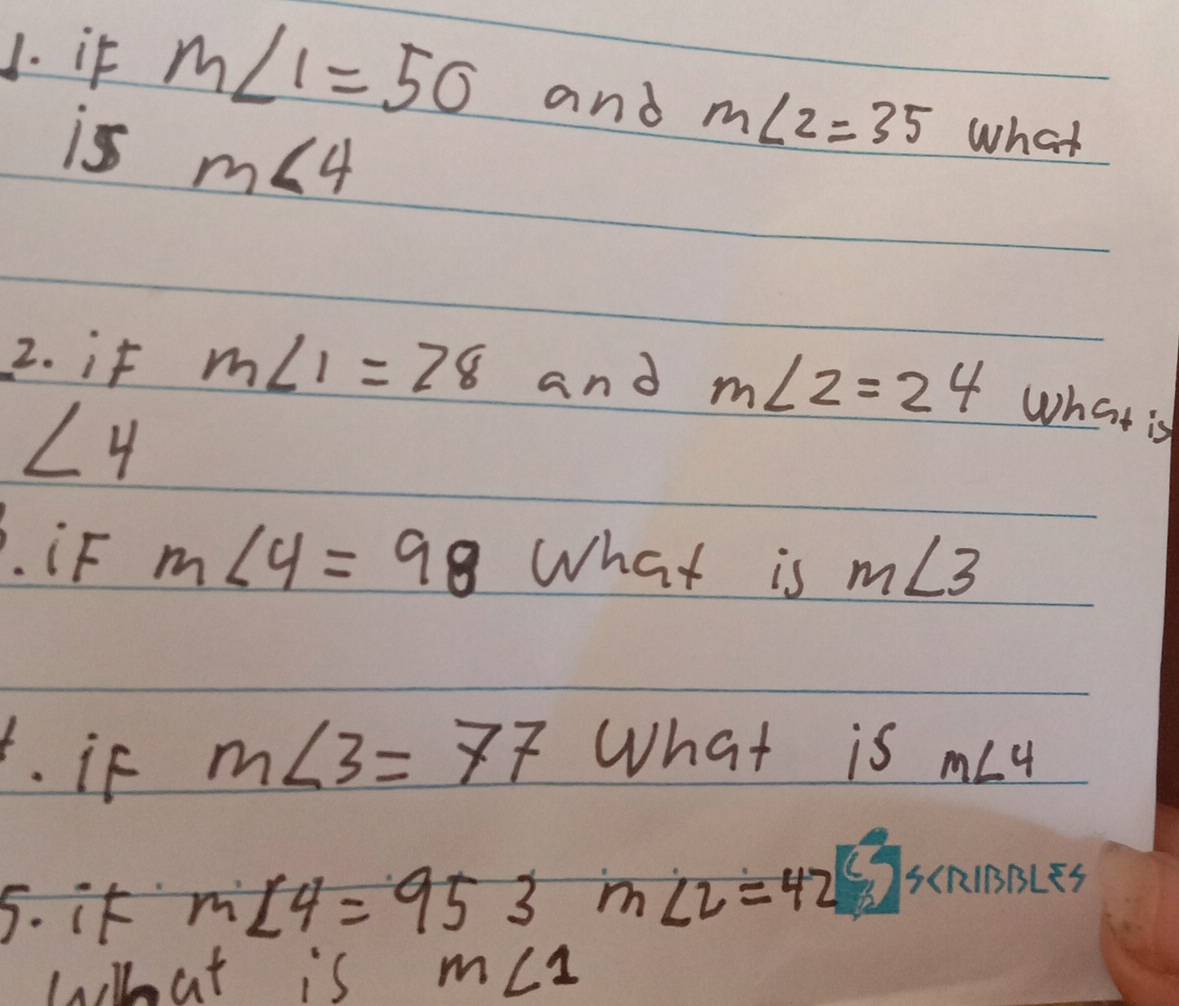 1. if m∠1=50 and m∠2=35 what
is m∠4
2. if m∠1=28 and m∠2=24 what is
∠4
. iF m∠4=98 What is m∠3
. iF m∠3=77 What is m∠4
5. if m∠4=95 3 m∠2=42
What is m∠1
SCRIBBLES